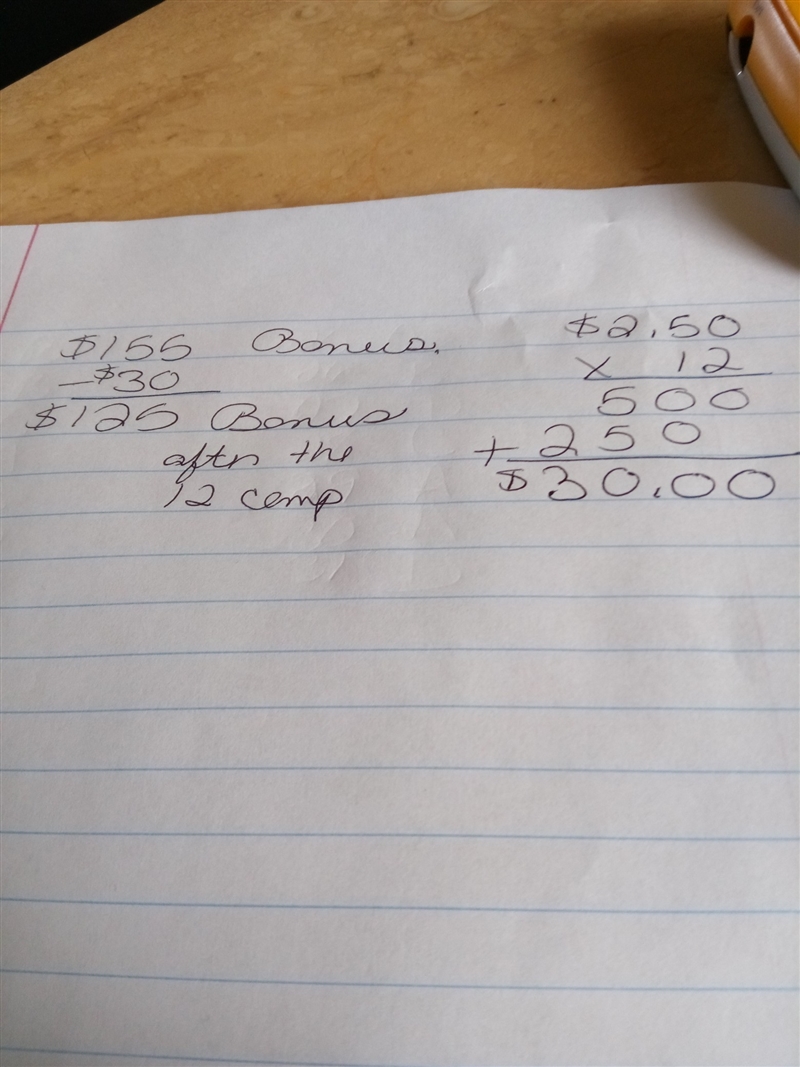 $155 Bonus.
- $30
$125 Bonus
aftr the
12 comp
$2.50
x 12
500
+ 250
$30.00